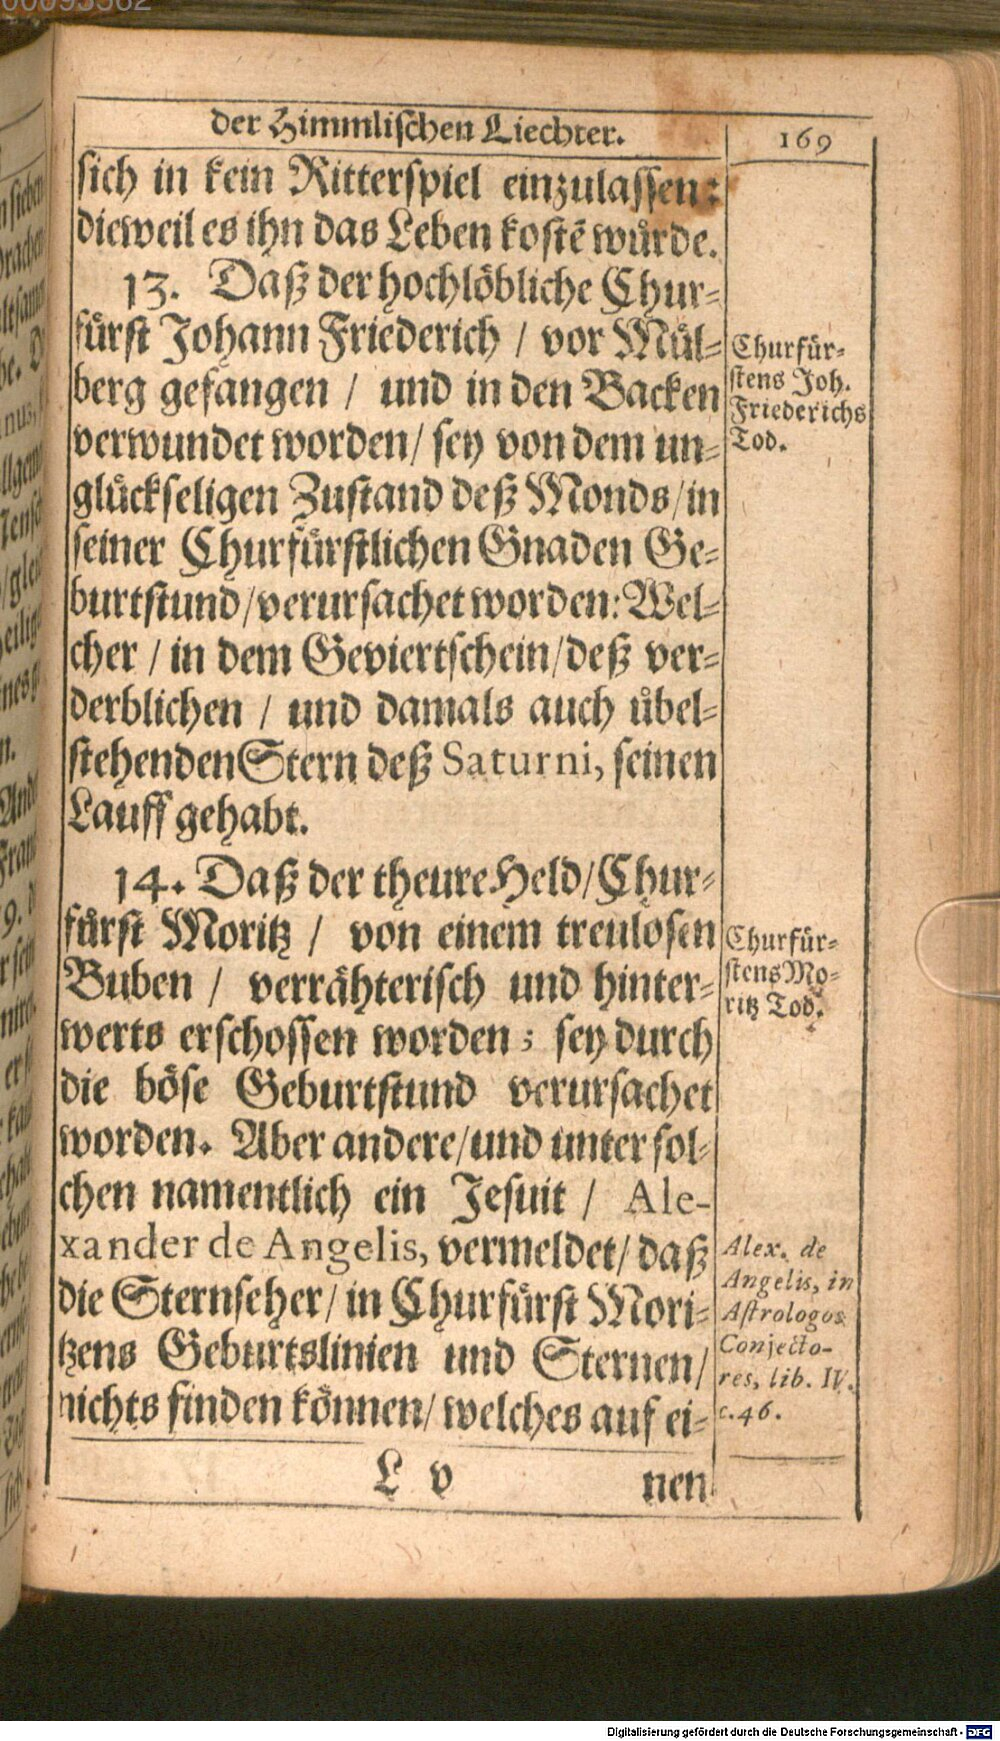 00093362
der Himmlischen Liechter.
169
sich in kein Ritterspiel einzulassen:
dieweil es ihn das Leben kostẽ wuͤrde.
13. Daß der hochloͤbliche Chur⸗
fuͤrst Johann Friederich / vor Muͤl⸗
berg gefangen / und in den Backen
verwundet worden / sey von dem un⸗
gluͤckseligen Zustand deß Monds / in
seiner Churfuͤrstlichen Gnaden Ge⸗
burtstund / verursachet worden: Wel⸗
cher / in dem Geviertschein / deß ver⸗
derblichen / und damals auch uͤbel⸗
stehenden Stern deß Saturni, seinen
Lauff gehabt.
Churfuͤr⸗
stens Joh.
Friederichs
Tod.
14. Daß der theure Held / Chur⸗
fuͤrst Moritz / von einem treulosen
Buben / verraͤhterisch und hinter⸗
werts erschossen worden ; sey durch
die boͤse Geburtstund verursachet
worden. Aber andere / und unter sol⸗
chen namentlich ein Jesuit / Ale-
xander de Angelis, vermeldet / daß
die Sternseher / in Churfuͤrst Mori⸗
tzens Geburtslinien und Sternen /
nichts finden koͤnnen / welches auf ei⸗
Churfuͤr⸗
stens Mo⸗
ritz Tod.
Alex. de
Angelis, in
Astrologos
Conjecto-
res, lib. IV.
c. 46.
L v
nen
Digitalisierung gefördert durch die Deutsche Forschungsgemeinschaft - DFG